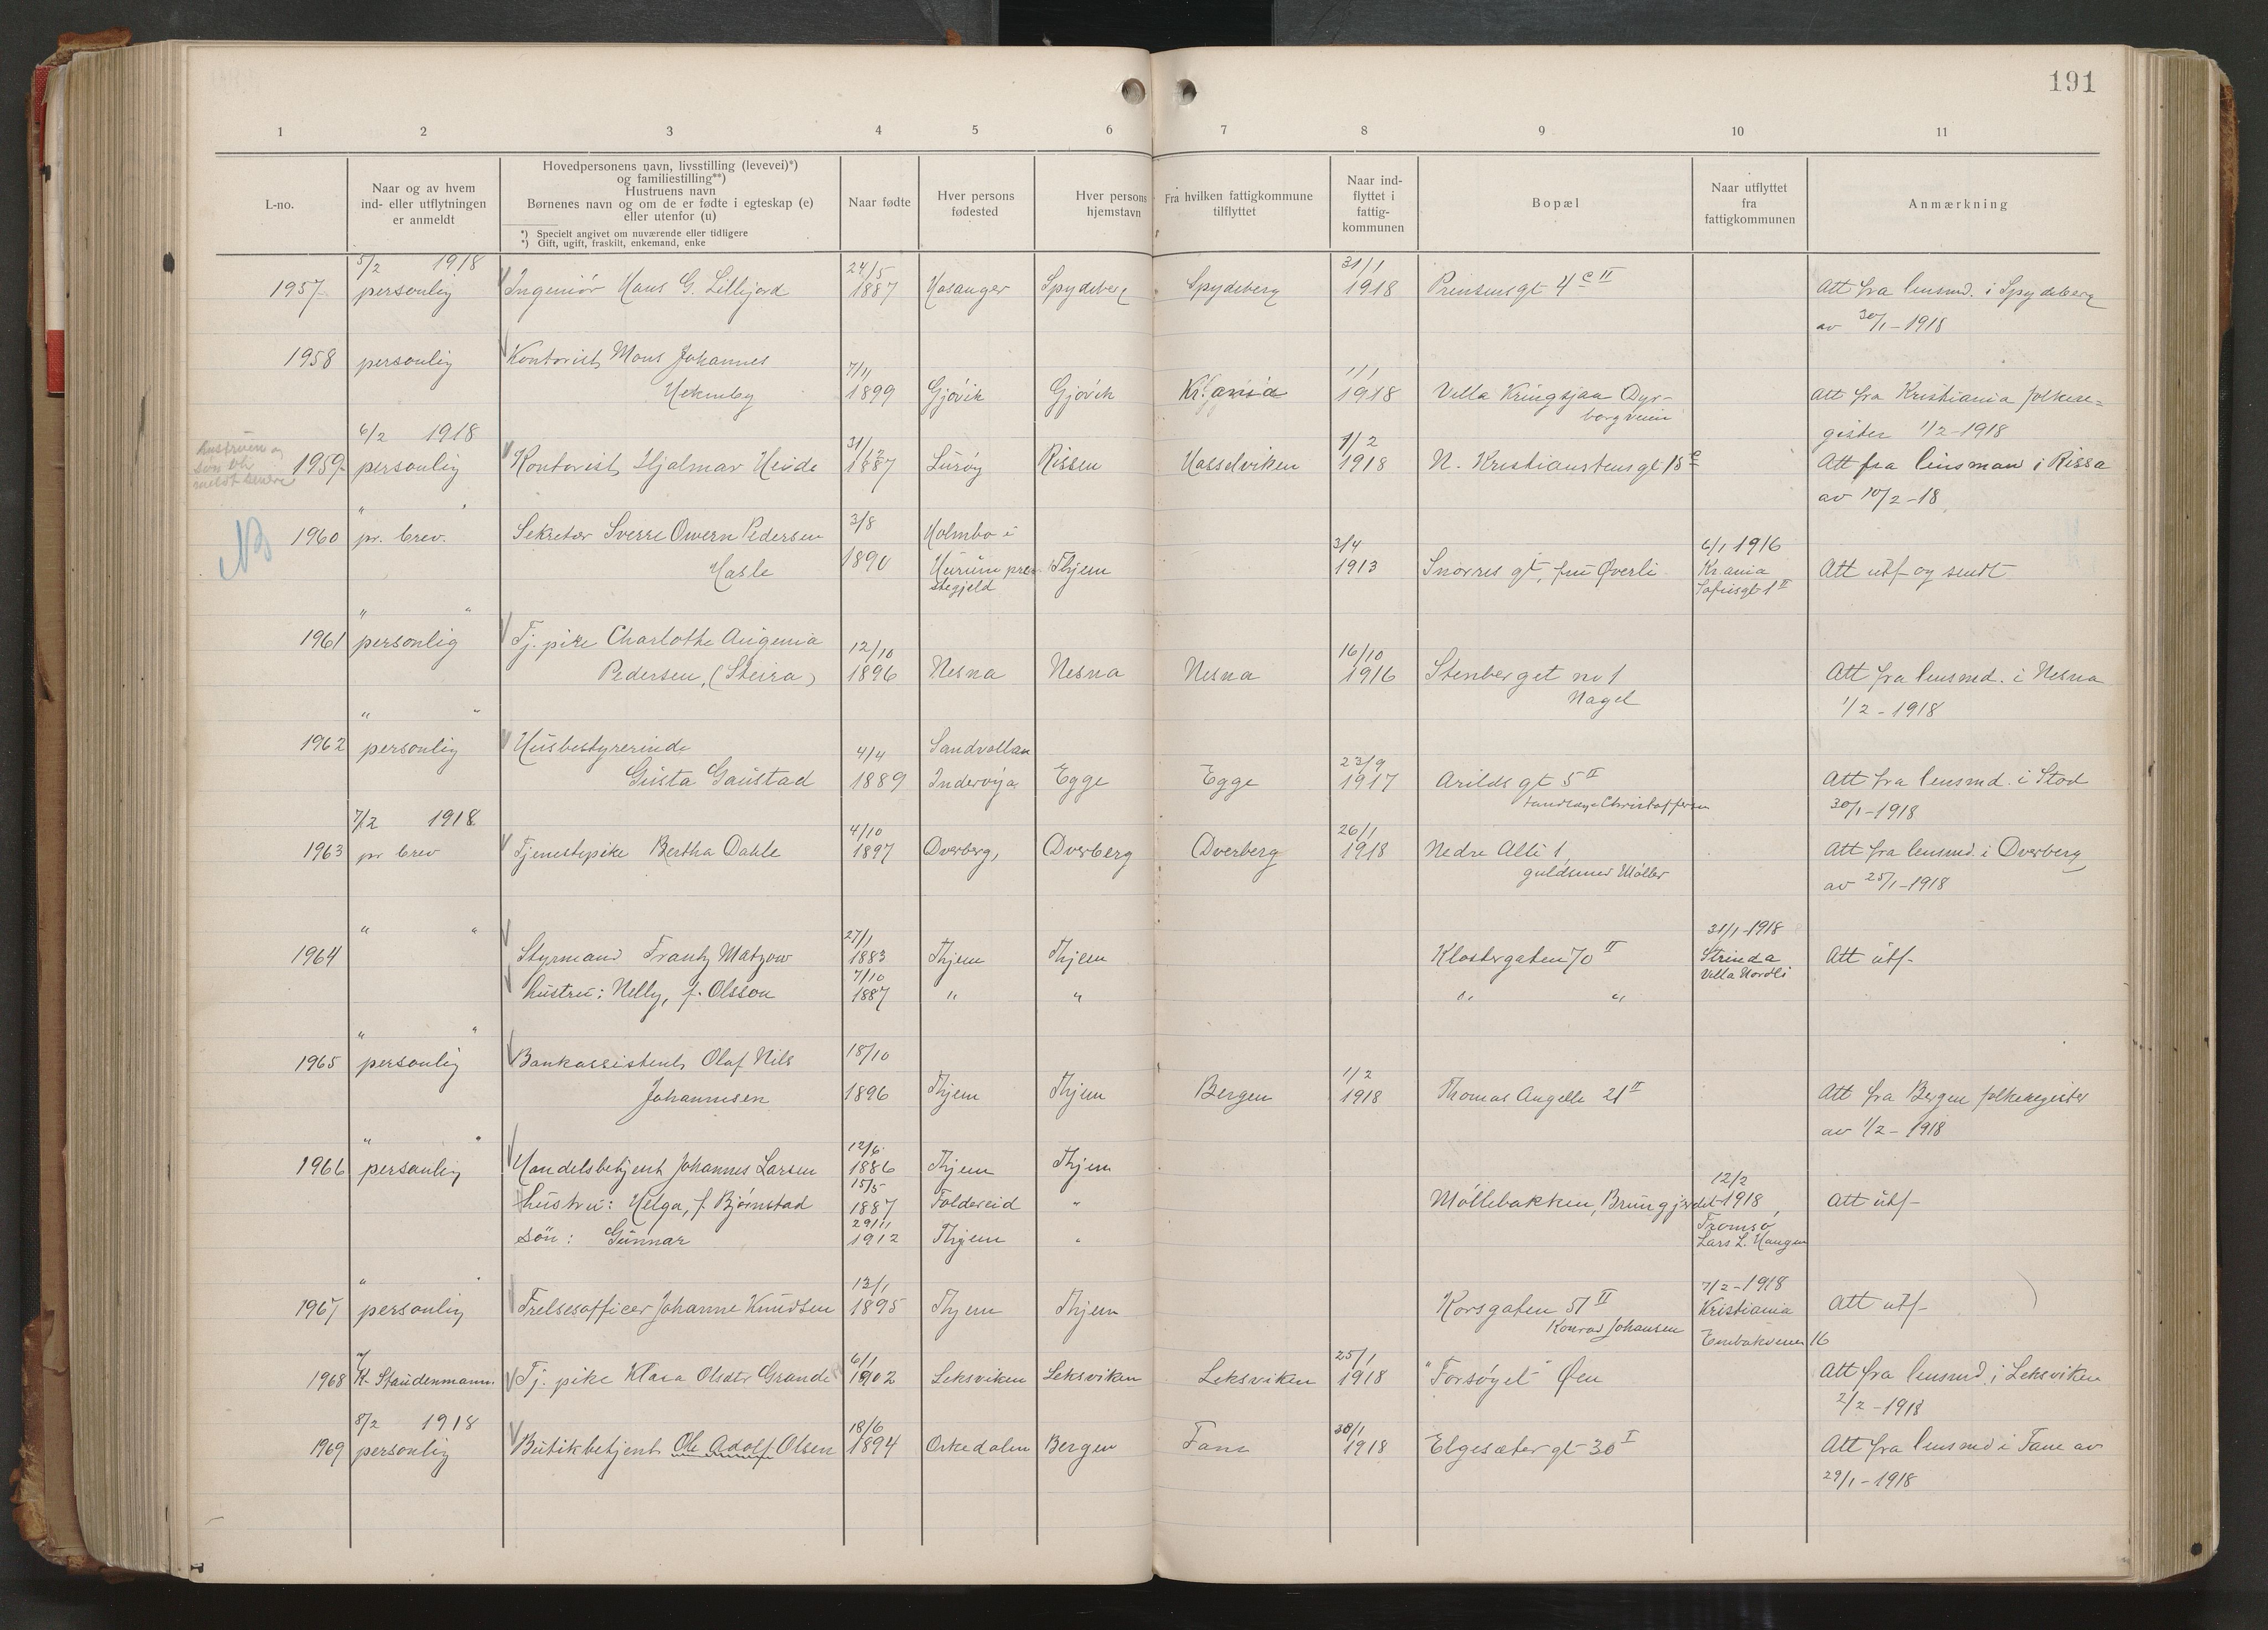 191
1 2 3 4 5 6 7 8 9 10 11
L-no.
Naar og av hvem
ind- eller utflytningen
er anmeldt
Hovedpersonens navn, livsstilling (levevei)*)
og familiestilling**)
Hustruens navn
Børnenes navn og om de er fødte i egteskap (e)
eller utenfor (u)
*) Specielt angivet om nuværende eller tidligere
*) Gift, ugift, fraskilt, enkemand, enke
Naar fødte
Hver persons
fødested
Hver persons
hjemstavn
Fra hvilken fattigkommune
tilflyttet
Naar ind-
flyttet i
fattig-
kommunen
Bopæl
Naar utflyttet
fra
fattigkommunen
Anmærkning
5/2 1918 24/5 31/1
1957 personlig Ingeniör Hans G. Lillejord 1887 Hosanger Spydeberg Spydeberg 1918 Prinsensgt 4 c II Att fra lensmd. i Spydeberg
av 30/1-1918
1958 personlig Kontorist Mons Johannes 7/11 1/1
1899 Gjövik Gjövik Kr.ania 1918 Villa Kringsjaa Dyr- Att fra Kristiania folkere=
borgveien
6/2 1918 gister 1/2-1918
hustruen og
søn bli
meldt senere
31/12 1/2
1959 personlig Kontorist Hjalmar Heide 1887 Luröy Rissen Hasselviken 1918 N. Kristianstensgt 18 c Att fra lensman i Rissa
av 10/2-18
" "
NB
1960 pr. brev. Sekretær Sverre Owern Pedersen 3/8 Holmbo i 3/4 6/1 1916
Hasle 1890 Hurum pre- Thjem 1913 Snorres gt, fru Øverli Kr ania Att utf og sendt
stegjeld Sofiesgt 1 II
" "
1961 personlig Tj. pike Charlotte Augenia 12/10 16/10
Pedersen, (Steira) 1896 Nesna Nesna Nesna 1916 Stenberget no 1 Att fra lensmd. i Nesna
Nagel 1/2-1918
" "
1962 personlig Husbestyrerinde 4/4 Sandvollan 23/9
Gusta Gaustad 1889 Inderöya Egge Egge 1917 Arilds gt 5 II Att fra lensmd. i Stod
tandlæge Christoffersen 30/1-1918
7/2 1918 4/10 26/1
1963 pr brev Tjenestepike Bertha Dahle 1897 Dverberg, Dverberg Dverberg 1918 Nedre Alle 1, Att fra lensmd. i Dverberg
guldsmed Möller av 25/1-1918
" " 27/1 31/1-1918
1964 Styrmand Frantz Matzow 1883 Thjem Thjem Klostergaten 70 II Strinda Att utf-
7/10 Villa Nordli
hustru: Nelly, f. Olsson 1887 " " " "
" "
1965 personlig Bankassistent Olaf Nils 18/10 1/2
Johannesen 1896 Thjem Thjem Bergen 1918 Thomas Angells 21 II Att fra Bergen folkeregister
av 1/2-1918
" " 12/6
1966 personlig Handelsbetjent Johannes Larsen 1886 Thjem Thjem
15/5 12/2
hustru: Helga, f. Bjørnstad 1887 Foldereid " Möllebakken, Brungjerdet 1918, Att utf-
29/11 Tromsö
søn: Gunnar 1912 Thjem " Lars L. Haugen
" " 13/1 7/2-1918
1967 personlig Frelsesofficer Johanne Knudsen 1895 Thjem Thjem Korsgaten 51 II Kristiania Att utf-
Konrad Johansen 16
6/1 25/1
1968 K. Staudenmann. Tj. pike Klara Olsdtr Grande 1902 Leksviken Leksviken Leksviken 1918 "Forsöget" Øen Att fra lensmd. i Leksviken
2/2-1918
8/2 1918 18/6 30/1
1969 personlig Butikbetjent Ole Adolf Olsen 1894 Orkedalen Bergen Fane 1918 Elgesæter gt 30 I Att fra lensmd i Fane av
29/1-1918